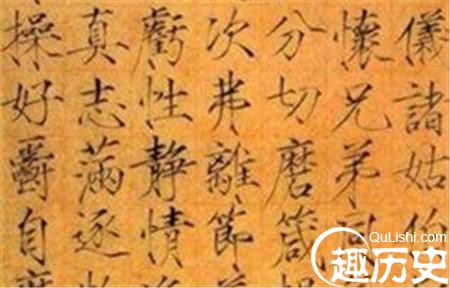 儀諸姑伯
懷兄弟
分切磨箴
次弗離節
虧性靜情
真志滿逐
操好爵自
QuLishi.com
趣历史